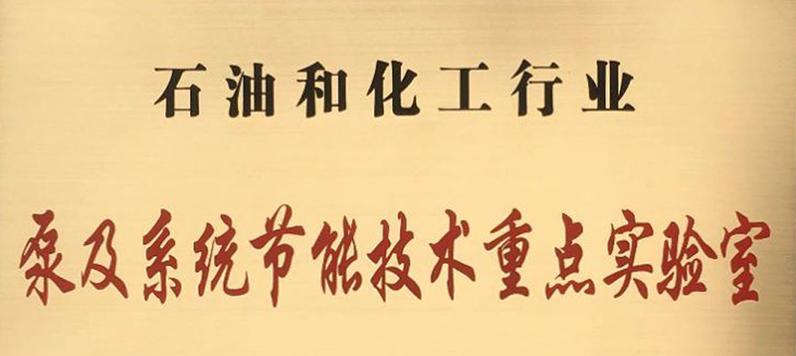 石油和化工行业
泵及系统节能技术重点实验室